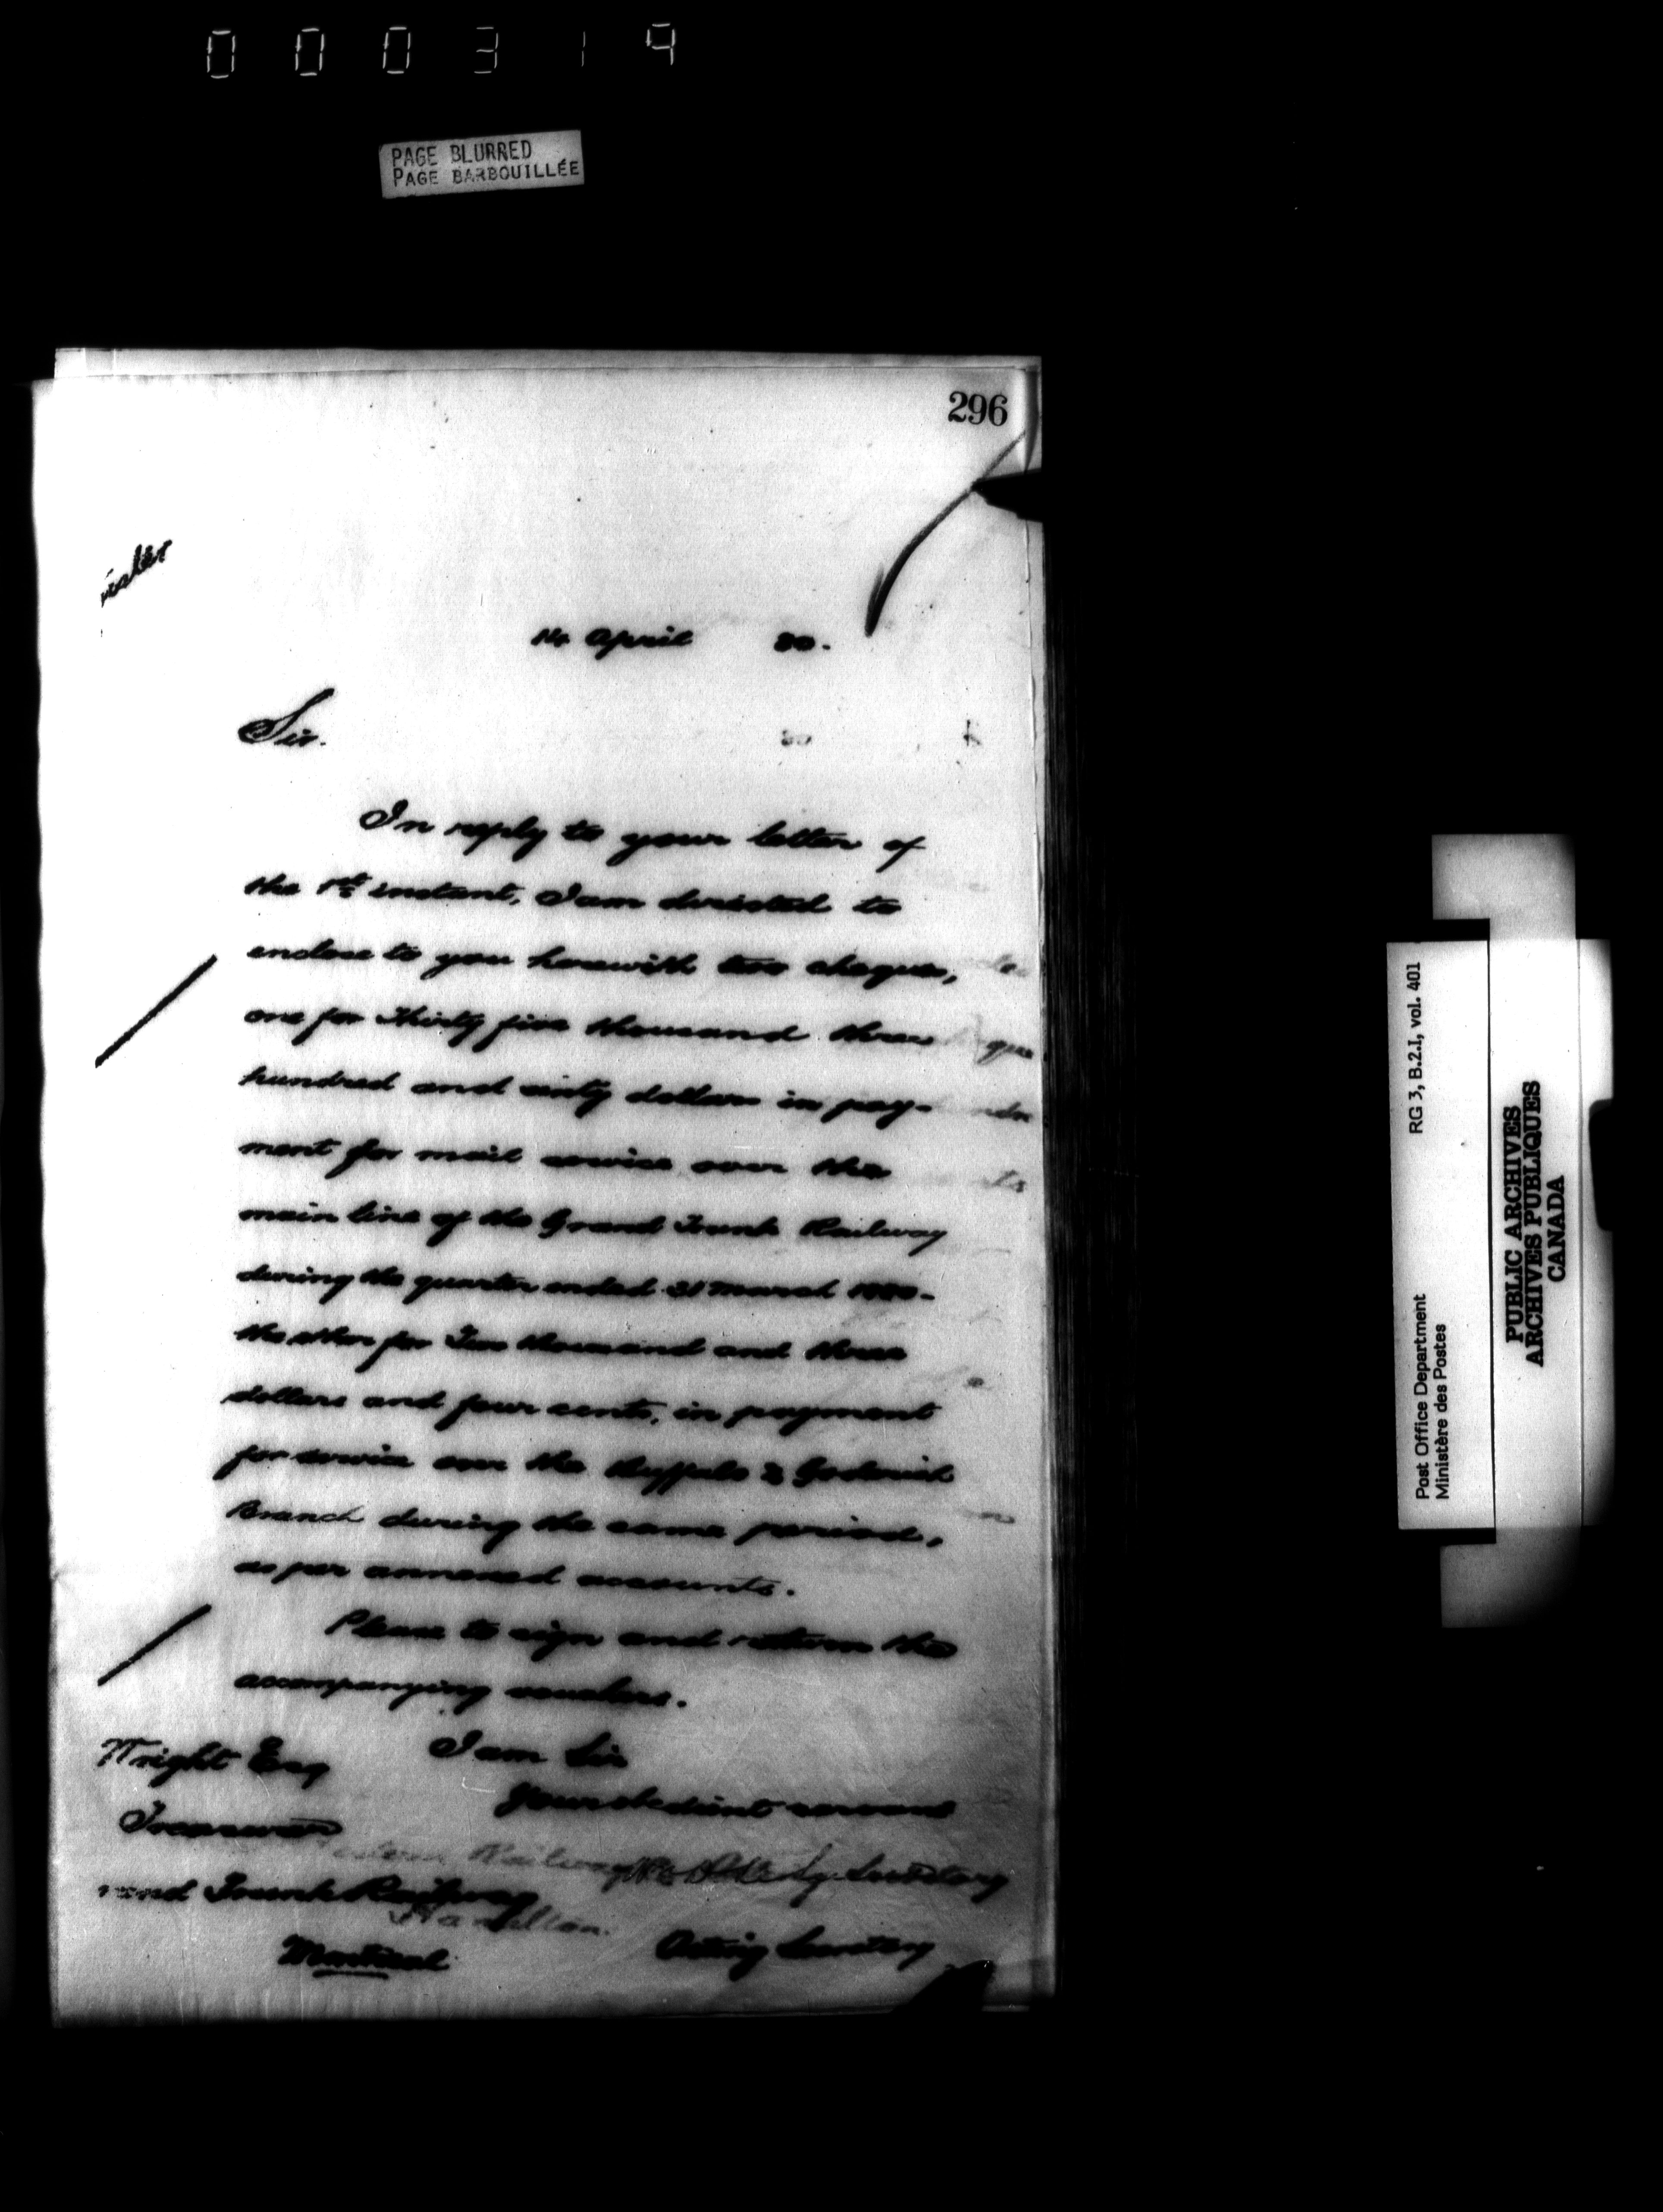 000319
PAGE BLURRED
PAGE BARBOUILLÉE
296
14 April 80.
Sir.
In reply to your letter of
the 1st instant, I am directed to
enclose to you herewith two cheques,
one for Thirty five thousand three
hundred and sixty dollars in pay-
ment for mail service over the
main line of the Grand Trunk Railway
during the quarter ended 31 March 1880-
the other for Two thousand and three
dollars and four cents, in payment
for service over the Buffalo & Goderich
Branch during the same period,
as per annexed accounts.
Please to sign and return the
accompanying vouchers.
I am Sir
Your obedient servant
Wright Esq
Treasurer
rand Trunk Railway
Montreal
Acting Secretary
Post Office Department RG 3, B.2.I, vol. 401
Ministère des Postes
PUBLIC ARCHIVES
ARCHIVES PUBLIQUES
CANADA